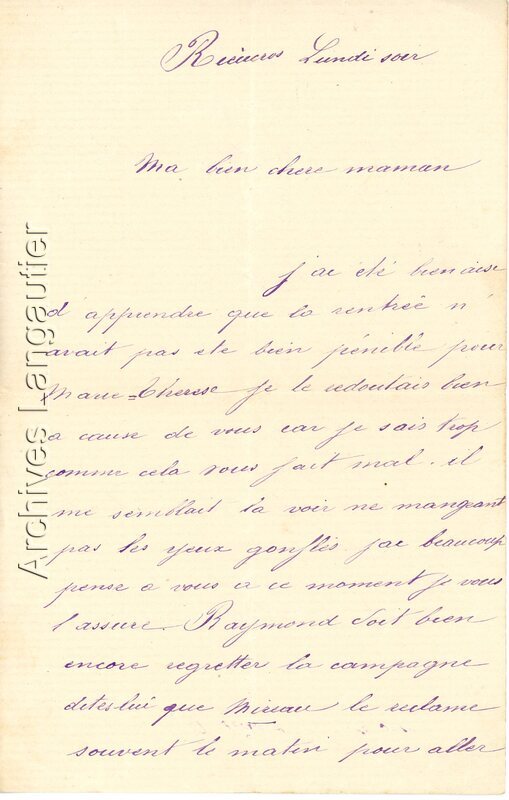 Lundi soir
Ma bien chere maman
j'ai été bien aise
d'apprendre que la rentrée n'
avait pas ete bien pénible pour
Marie=Therese je le redoutais bien
a cause de vous car je sais trop
comme cela vous fait mal. il
me semblait la voir ne mangeant
pas les yeux gonflés j'ai beaucoup
pense a vous a ce moment je vous
l'assure. Raymond doit bien
encore regretter la campagne
dites lui que Mireau le reclame
souvent le matin pour aller
Archives Langautier